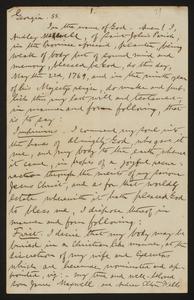 1.
Georgia. ss.
In the name of God Amen! I,
Audley Maxwell, of Saint John's Parish,
in the Province Aforesaid, planter, being
weak of body but of sound mind and
memory, blessed be God, do this day,
May the 22d, 1769, and in the ninth year
of his Majesty's reign, do make and pub-
lish this my last will and testament,
in manner and form following, that
is to say:
Imprimis: I commend my soul into
the hands of Almighty God who gave it
me, and my body to the earth whence
it came, in hopes of a joyful resur-
rection through the merits of my Saviour
Jesus Christ, and as for that worldly
estate wherewith it hath pleased God
to bless me, I dispose thereof in
manner and form following:
First: I desire that my body may be
buried in a Christian like manner, at the
discretion of my wife and Executors
which are hereinafter nominated and ap-
pointed, viz: my true and well-beloved
sons James Maxwell and